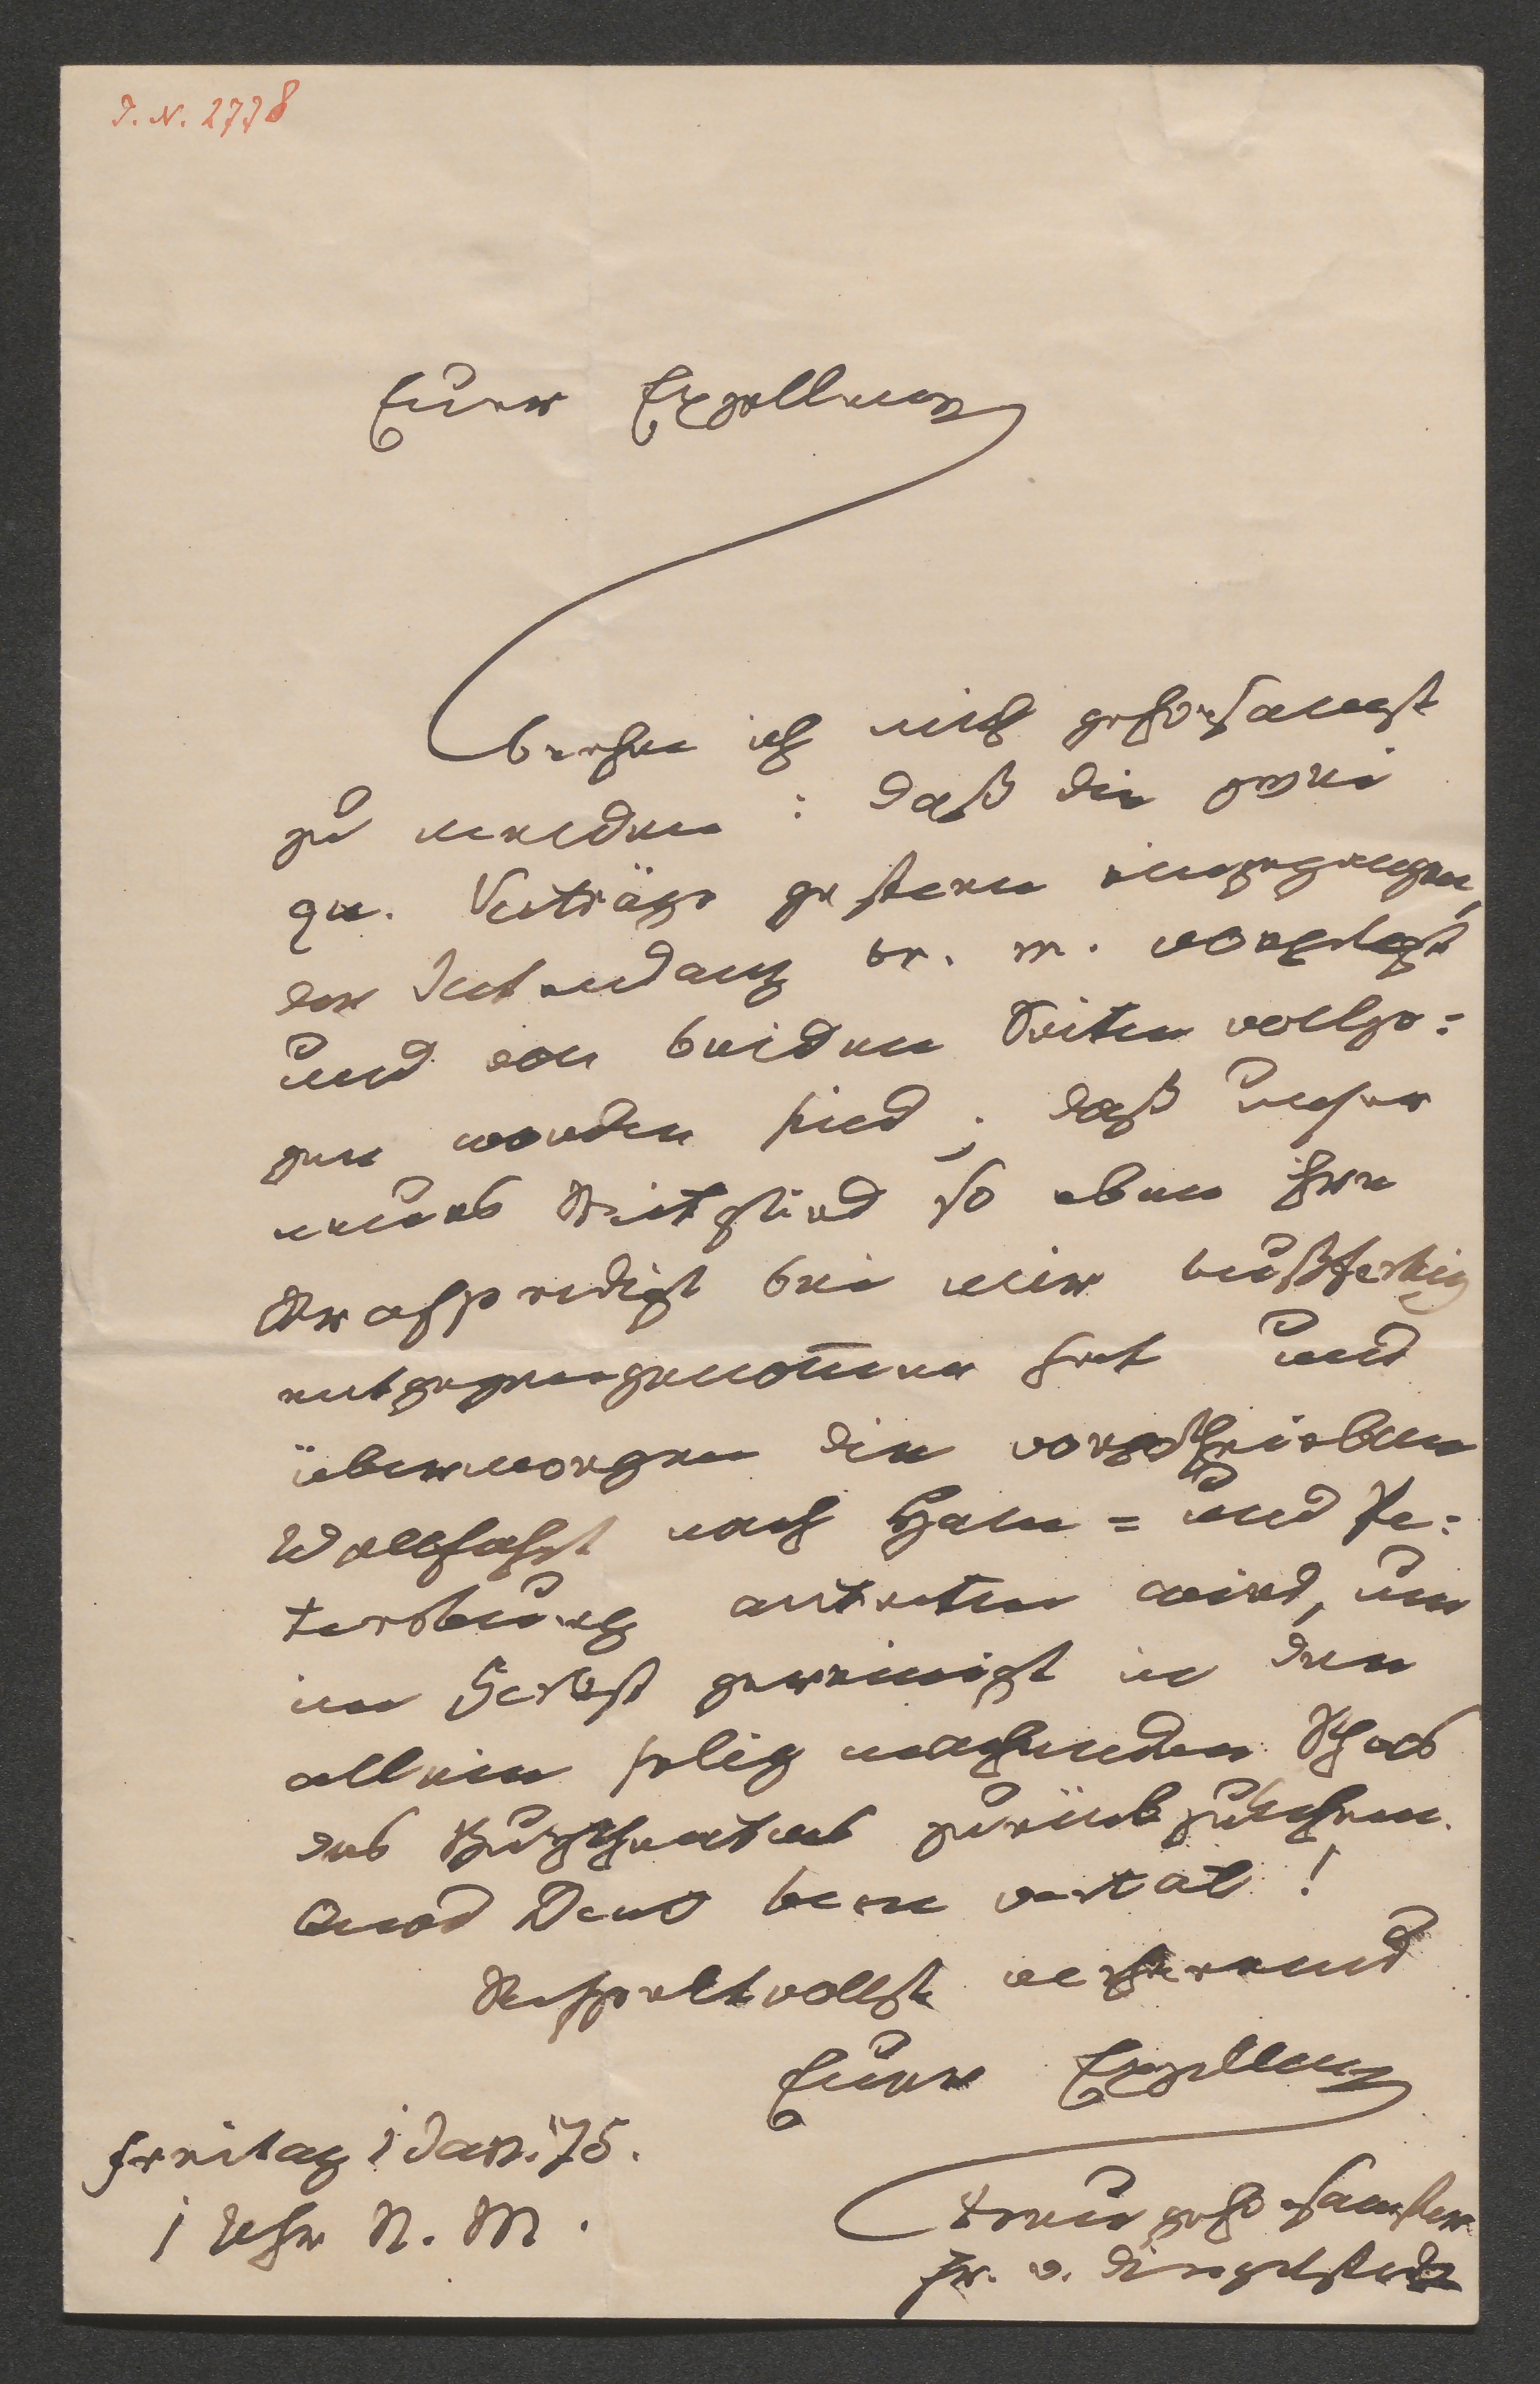 J. N. 2778
Eurer Exzellenz
beehre ich mich gehorsamst
zu melden: daß die zwei
qu. Verträge gestern eingegangen,
der Intendanz br. m. vorgelegt
und von beiden Seiten vollzo=
gen worden sind; daß unser
neues Mitglied so eben ihre
Strafpredigt bei mir bußfertig
entgegengenommen hat und
übermorgen die vorgeschriebene
Wallfahrt nach Ham= und Pe=
tersburg antreten wird, um
im Herbst gereinigt in den
allein selig machenden Schoos
des Burgtheaters zurückzukehren.
Quod Deus bene vertat!
Respektvollst verharrend
Eurer Exzellenz
Freitag 1 Jan. 75.
1 Uhr N. M.
treugehorsamster
Fr. v. Dingelstedt